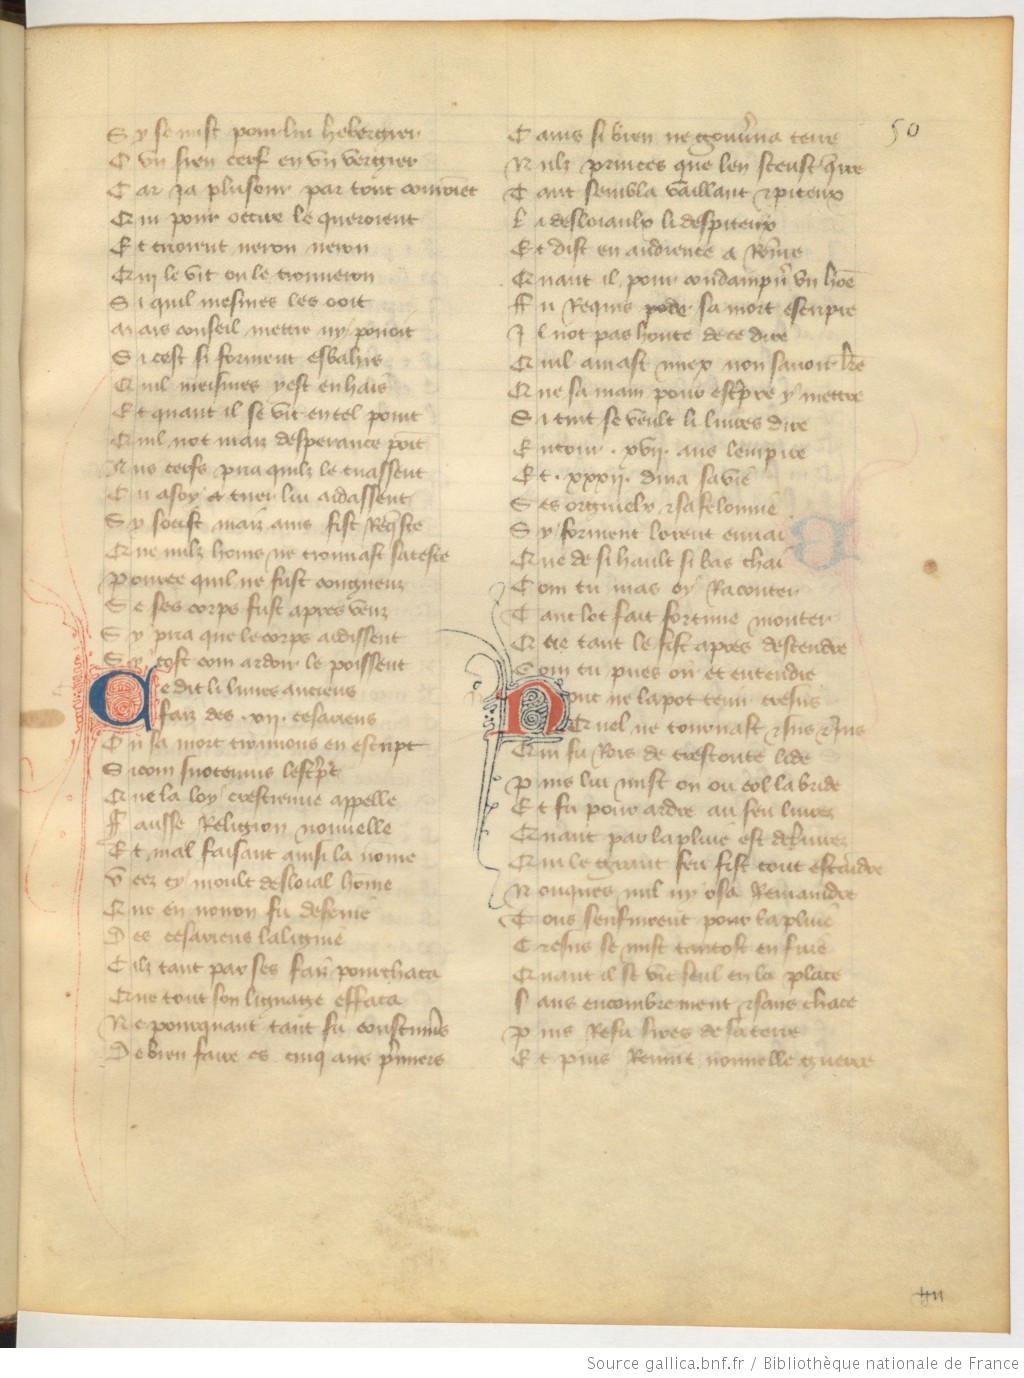 S y se mist pour lui hebergier
E vn sien cerf en vn vergier
C ar ja plusour par tout
Q ui pour occire le queroient
E t crioient neron neron
Q ui le vit ou le trouueron
S i quil mesmes les ooit
M ais conseil mettre ny pouoit
S i cest si forment esbahis
Q uil meismes yest enhais
E t quant il se vit en tel point
Q uil not maiz desperance point
S es cerfs pria quilz le tuassent
O u a soy a tuer lui aidassent
S y soccist maiz ains fist Req̃ste
Q ue nulz homs ne trouuast sa teste
P ource quil ne fust congneuz
S e ses corps fust apres veuz
S y pria que le corps
S y tost com ardoir le poissent
C e dit li liures anciens
faiz des .xii. cesariens
O u sa mort trouuons en escript
S icom
Q ue la loy crestienne appelle
F ausse Religion nouuelle
E t mal faisant ainsi la nõme
V eez cy moult desloial home
Q ue en noron fu
D es cesariens la lignie
C ilz tant par ses faiz pourchaca
Q ue tout son lignage effaca
N e pourquant tant fu
D e bien faire es cinq ans p̃miers
C anis si bien ne gouũna terre
N ulz princes que len sceust q̃rre
T ant sembla vaillant et piteux
L i desloiaulx li despiteux
E t dist en audience a Rõme
Q uant il pour condampn̄ vn hõe
F u Requis pode sa mort escripre
I l not pas honte de ce dire
Q uil amast miex non sauoir lr̃e
Q ue sa main pour escpre y mettre
S i tint se veult li liures dire
E nuiron .xvij. ans lempire
E t .xxxij. dura sa vie
S es orgueilx et sa felonnie
S y forment lorent enuai
Q ue de si hault si bas chai
C om tu mas oy Raconter
T ant lot fait fortune monter
Q ue tant le fist apres descendre
C om tu pues oir et entendre
N onc ne la pot tenir cresus
Quel ne tournast et sus et ius
Q ui fu Rois de trestoute lide
P uis lui mist on ou col la bride
E t fu pour ardre au feu liurez
Q uant par la pluie est deliurez
Q ui le grant feu fist tout estaindre
N onques nul ny osa Remaindre
T ous senfuirent pour la pluie
C resus se mist tantost en fuie
Q uant il se vit seul en la place
S ans encombrement et sans chace
P uis Refu sires de sa terre
E t puis Reuint nouuelle guerre
50
Source gallica.bnf.fr / Bibliothèque nationale de France